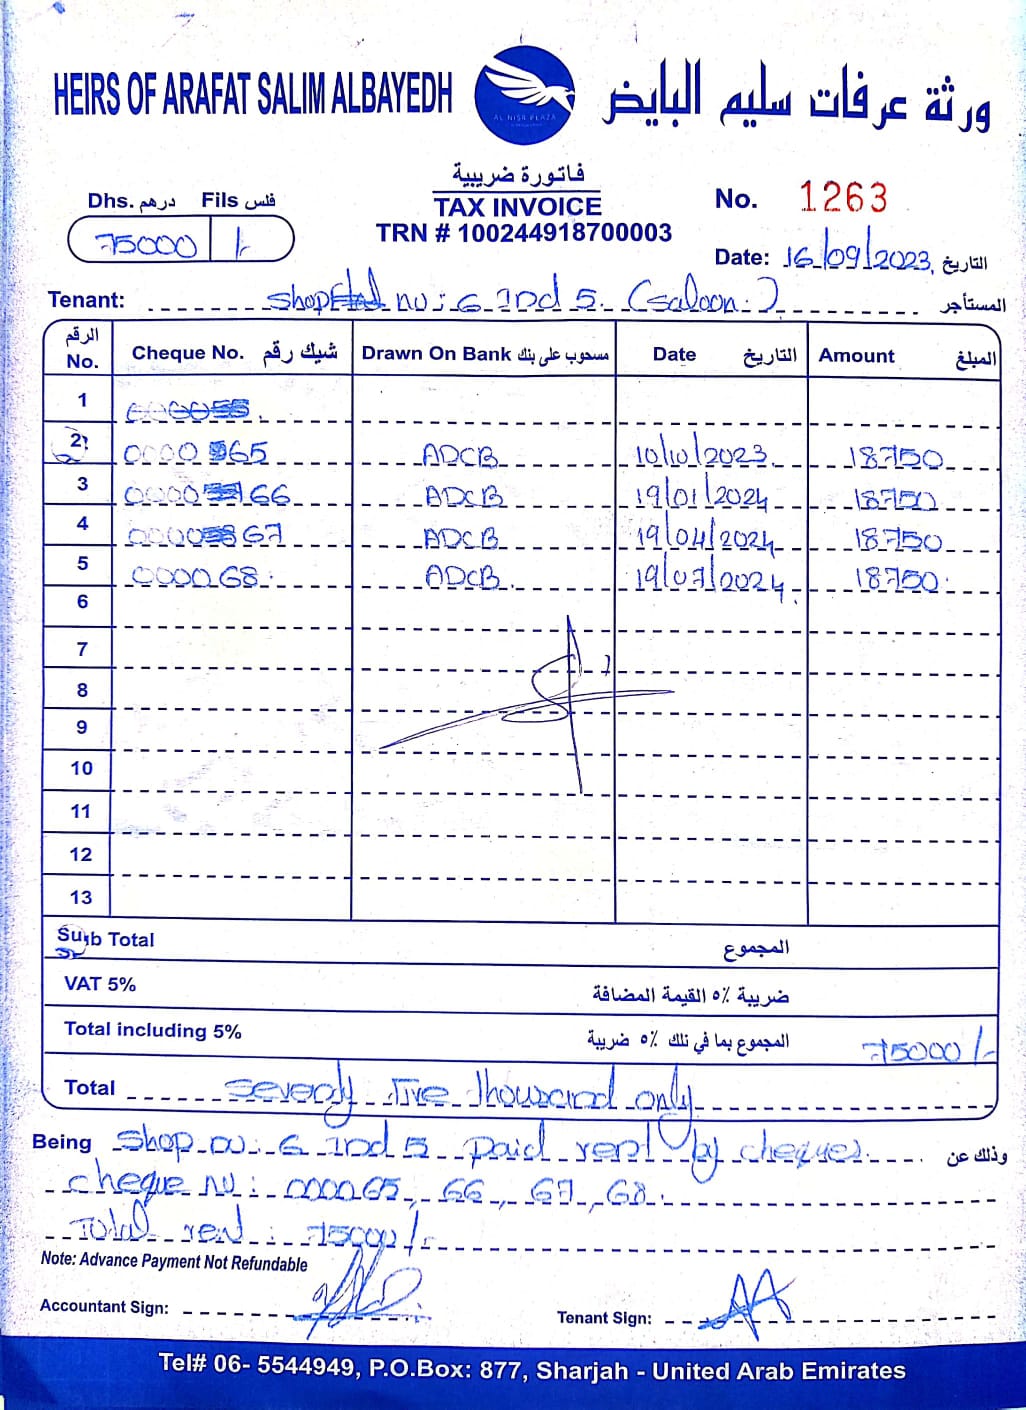 HEIRS OF ARAFAT SALIM ALBAYEDH
AL NISR PLAZA
ورثة عرفات سليم البايض
فاتورة ضريبية
TAX INVOICE
TRN # 100244918700003
Dhs. درهم Fils فلس
75000 /-
No. 1263
Date: 16/09/2023 التاريخ
Tenant: Shop no: 6 and 5. (Saloon.) المستأجر
الرقم No. Cheque No. شيك رقم Drawn On Bank مسحوب على بنك Date التاريخ Amount المبلغ
1
2 0000 65 ADCB 10/10/2023 18750
3 0000 66 ADCB 19/01/2024 18750
4 0000 67 ADCB 19/04/2024 18750
5 000068 ADCB 19/07/2024 18750
6
7
8
9
10
11
12
13
Sub Total المجموع
VAT 5% ضريبة ٥% القيمة المضافة
Total including 5% المجموع بما في ذلك ٥% ضريبة 75000/-
Total Seventy Five thousand only
Being Shop no: 6 and 5 paid rent by cheques. وذلك عن
cheque no: 000065, 66, 67, 68.
Total rent: 75000/-
Note: Advance Payment Not Refundable
Accountant Sign:
Tenant Sign:
Tel# 06- 5544949, P.O.Box: 877, Sharjah - United Arab Emirates